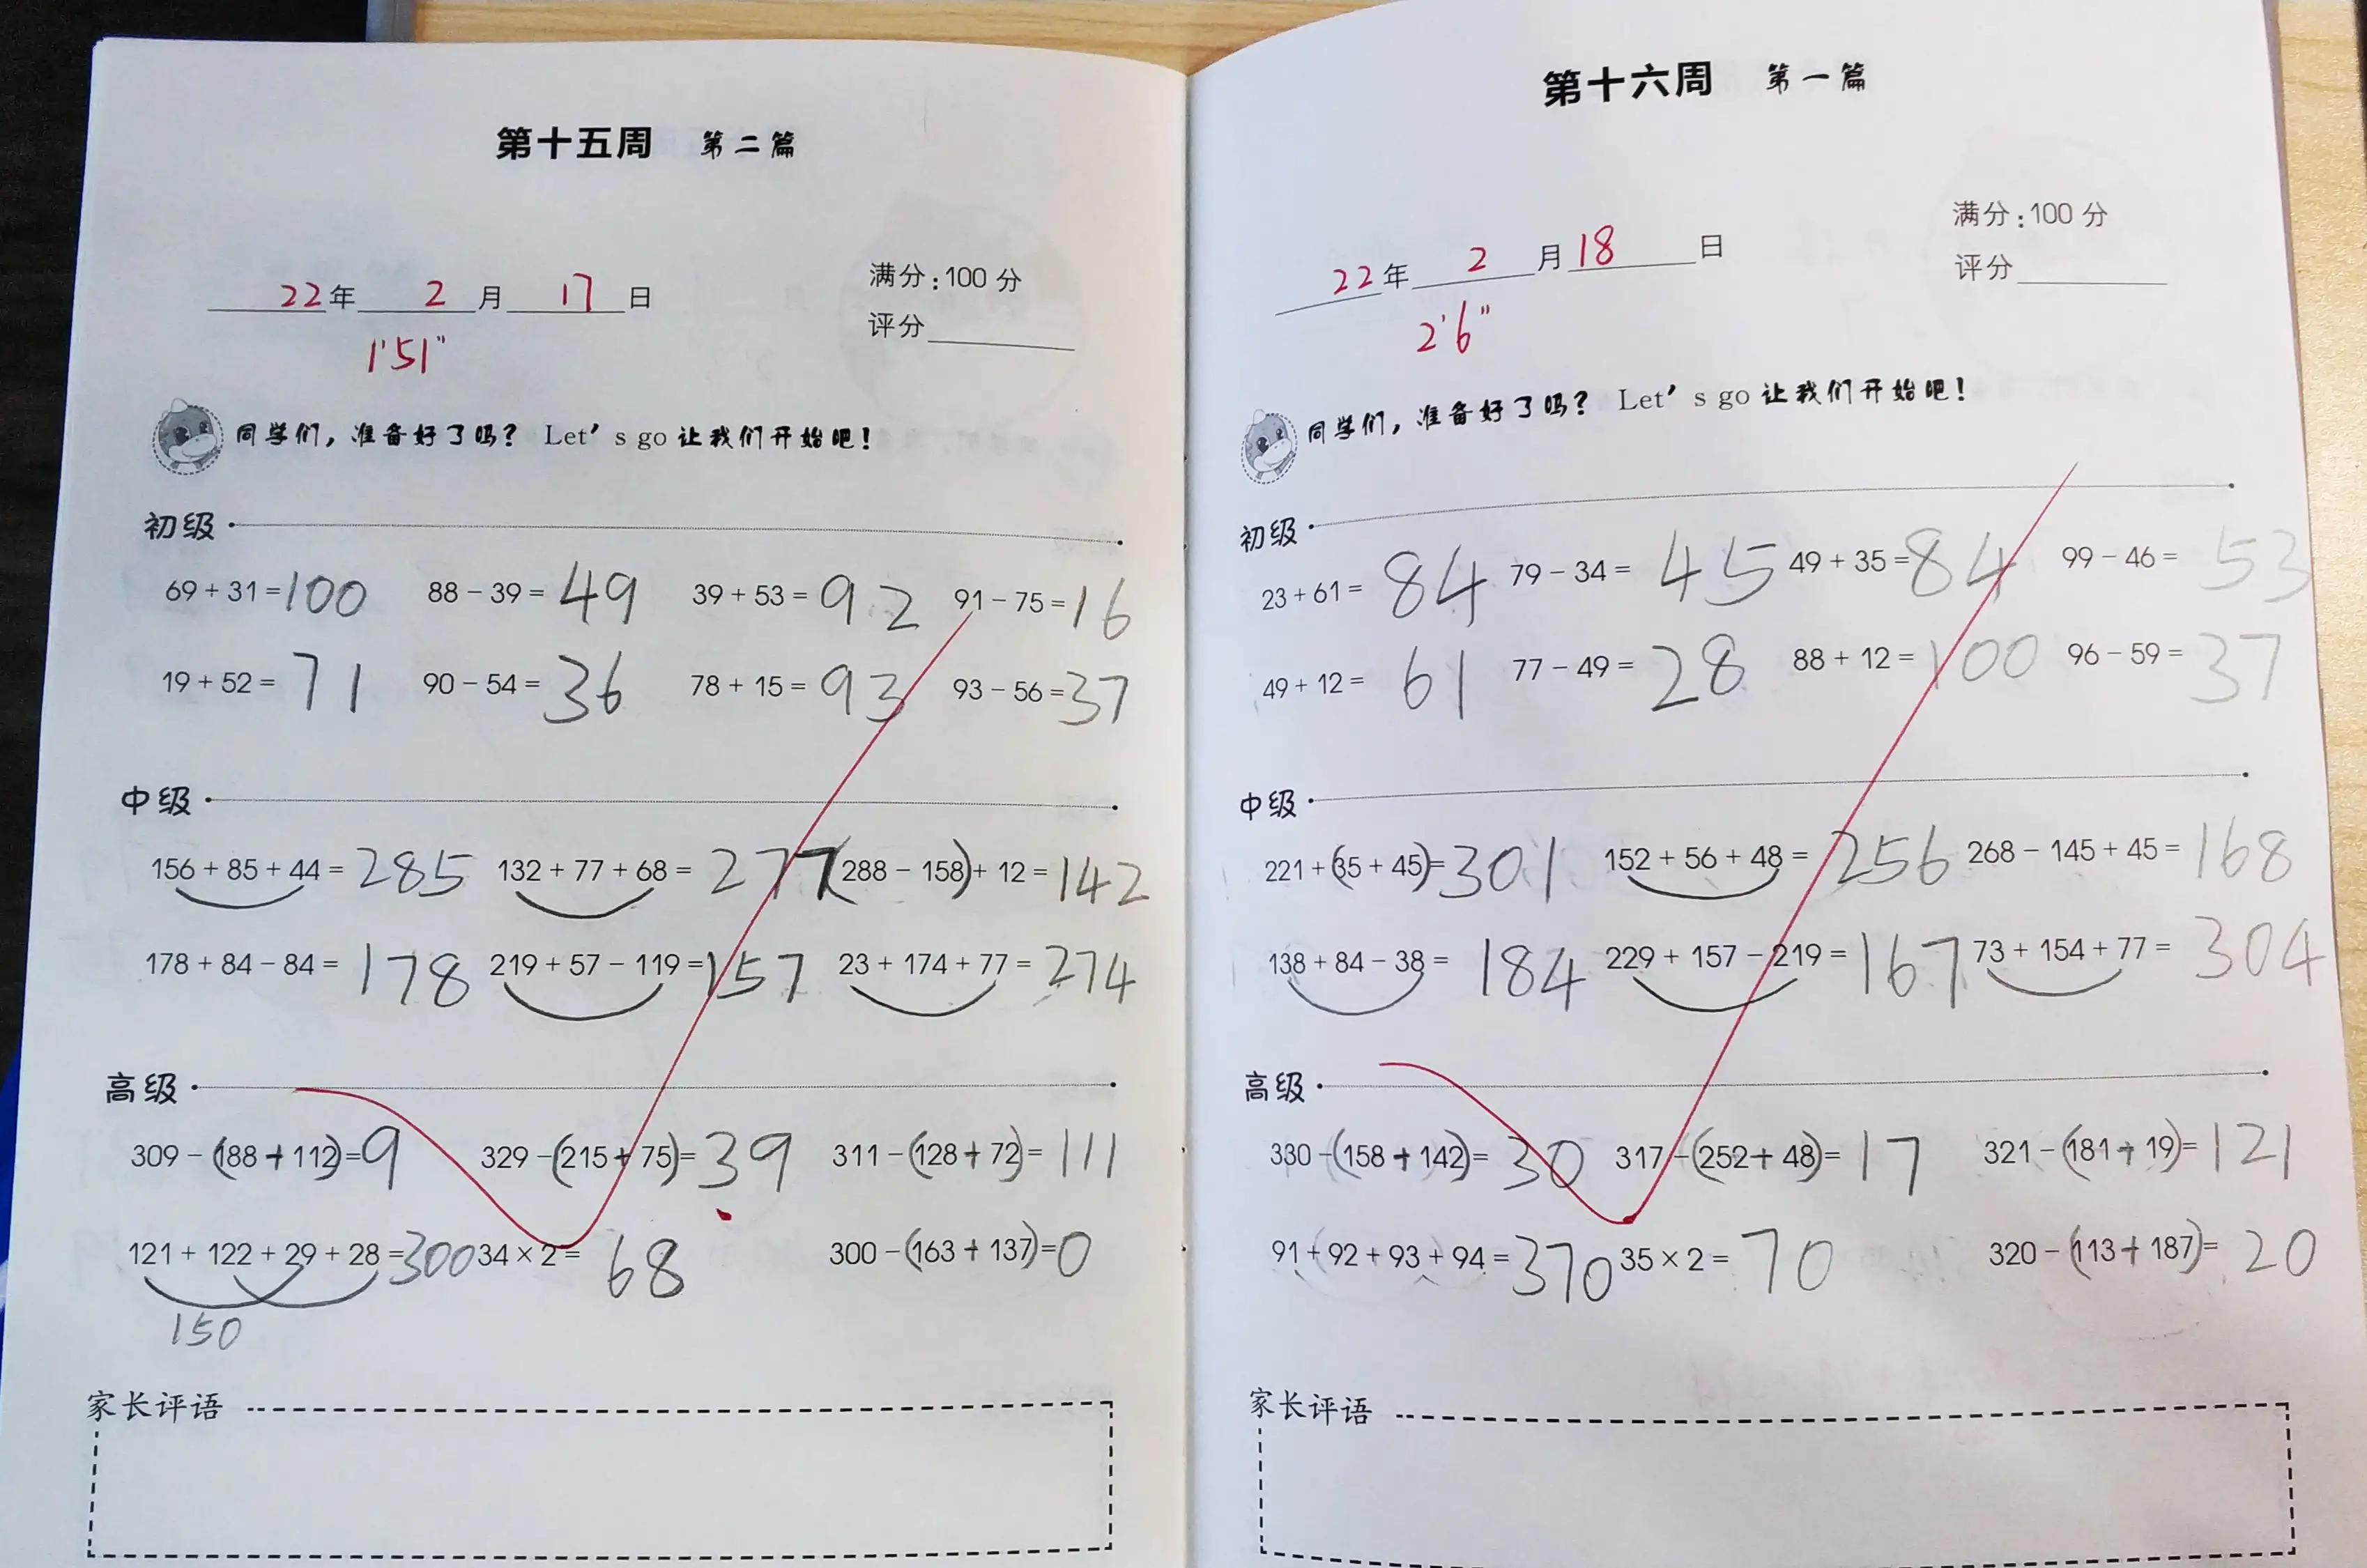 第十五周 第二篇
22年 2 月 17 日
1'51"
满分:100 分
评分
同学们,准备好了吗? Let's go 让我们开始吧!
初级
69 + 31 = 100 88 - 39 = 49 39 + 53 = 92 91 - 75 = 16
19 + 52 = 71 90 - 54 = 36 78 + 15 = 93 93 - 56 = 37
中级
156 + 85 + 44 = 285 132 + 77 + 68 = 277 (288 - 158) + 12 = 142
178 + 84 - 84 = 178 219 + 57 - 119 = 157 23 + 174 + 77 = 274
高级
309 - (188 + 112) = 9 329 - (215 + 75) = 39 311 - (128 + 72) = 111
121 + 122 + 29 + 28 = 300 34 × 2 = 68 300 - (163 + 137) = 0
150
家长评语
第十六周 第一篇
22年 2 月 18 日
2'6"
满分:100 分
评分
同学们,准备好了吗? Let's go 让我们开始吧!
初级
23 + 61 = 84 79 - 34 = 45 49 + 35 = 84 99 - 46 = 53
49 + 12 = 61 77 - 49 = 28 88 + 12 = 100 96 - 59 = 37
中级
221 + (35 + 45) = 301 152 + 56 + 48 = 256 268 - 145 + 45 = 168
138 + 84 - 38 = 184 229 + 157 - 219 = 167 73 + 154 + 77 = 304
高级
330 - (158 + 142) = 30 317 - (252 + 48) = 17 321 - (181 + 19) = 121
91 + 92 + 93 + 94 = 370 35 × 2 = 70 320 - (113 + 187) = 20
家长评语